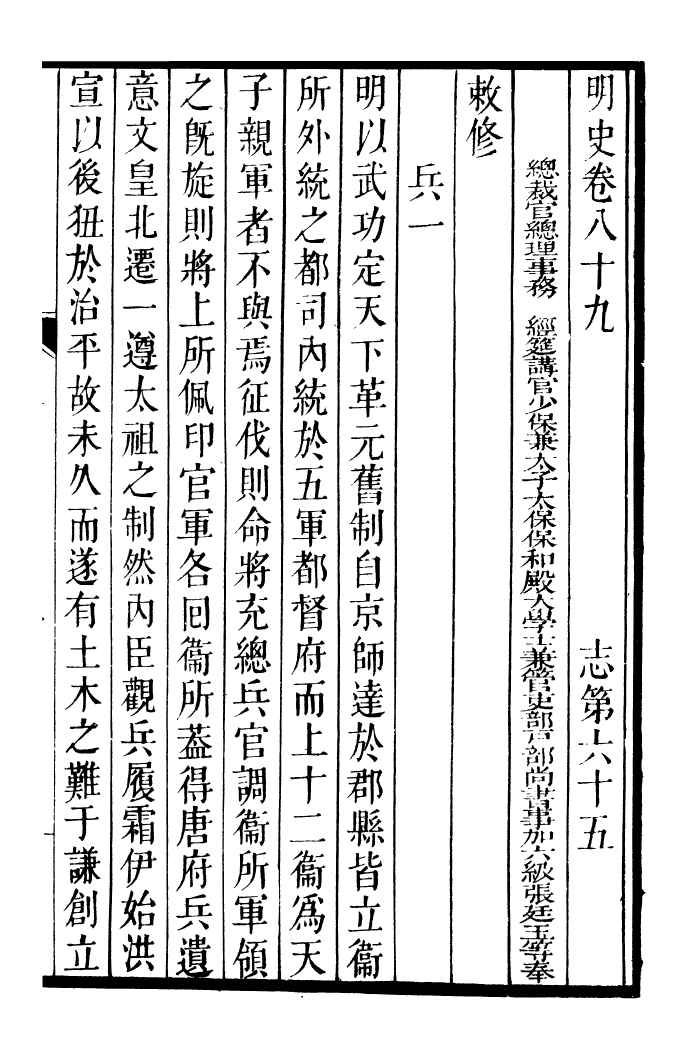 明史卷八十九　志第六十五
總裁官總理事務　經筵講官少保兼太子太保保和殿大學士兼管吏部戶部尚書事加六級張廷玉等奉
敕修
兵一
明以武功定天下革元舊制自京師達於郡縣皆立衞
所外統之都司內統於五軍都督府而上十二衞爲天
子親軍者不與焉征伐則命將充總兵官調衞所軍領
之旣旋則將上所佩印官軍各回衞所葢得唐府兵遺
意文皇北遷一遵太祖之制然內臣觀兵履霜伊始洪
宣以後狃於治平故未久而遂有土木之難于謙創立